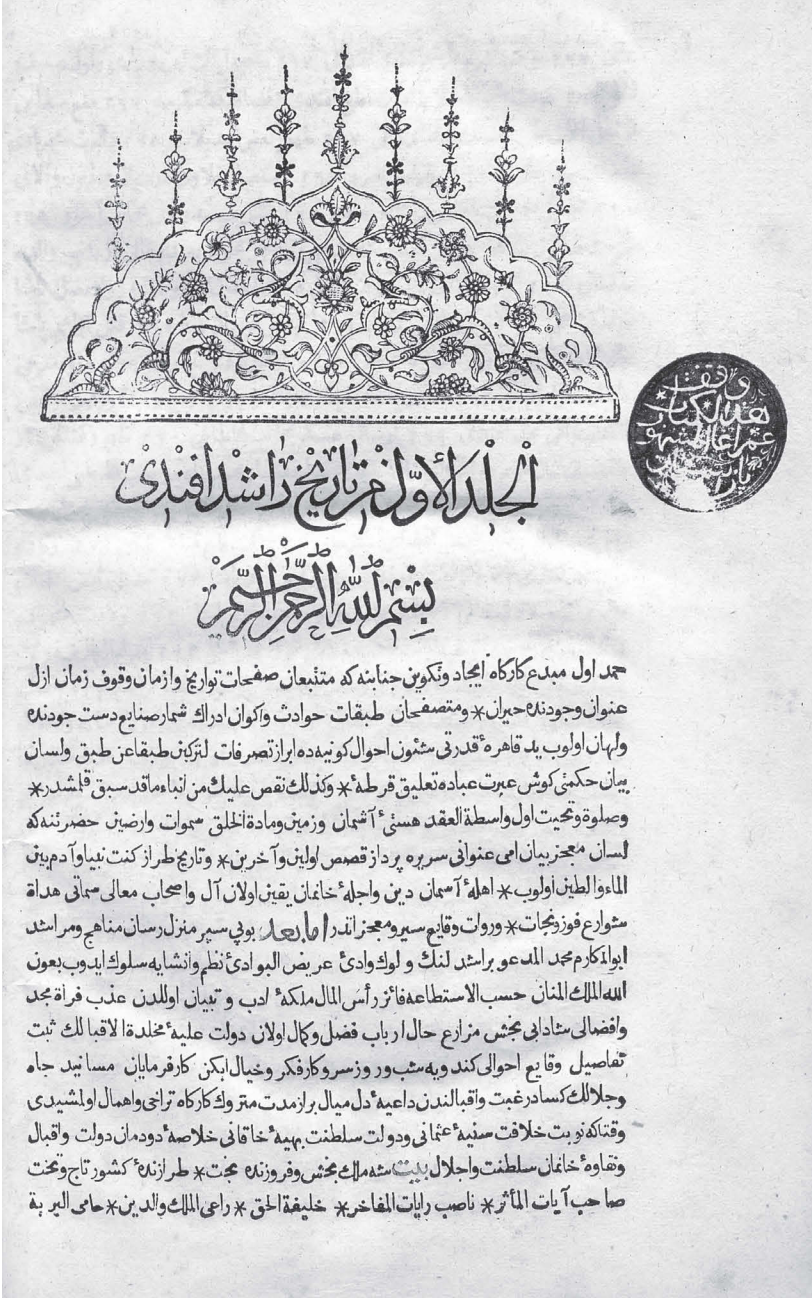 الجلد الأول من تاريخ راشد افندى
بسم الله الرحمن الرحيم
وقف
هذا الكتاب
حمد اول مبدع كارگاه ايجاد وتكوين جنابنه كه متتبعان صفحات تواريخ وازمان وقوف زمان ازل
عنوان وجودنده حيران * ومتصفحان طبقات حوادث واكوان ادراك شمار صنايع دست جودنده
ولهان اولوب يد قاهرهٔ قدرتى سئون احوال كونيه ده ابراز تصرفات لتركبن طبقا عن طبق ولسان
بيان حكمتى كوش عبرت عباده تعليق قرطهٔ * وكذلك نقص عليك من انباء ماقد سبق قلمشدر *
وصلوة وتحيت اول واسطة العقد هستئ آشمان وزمين ومادة الخلق سموات وارضين حضرتنه كه
لسان معجز بيان امى عنوانى سريره پرداز قصص اولين وآخرين * وتاريخ طراز كنت نبيا وآدم بين
الماء والطين اولوب * اهلهٔ آسمان دين واجلهٔ خانمان يقين اولان آل واصحاب معالى سماتى هداة
سئوارع فوز ونجات * وروات وقايع سير ومعجزاتدر اما بعد بوپى سپر منزل رسان مناهج ومراسد
ابوالمكارم محمد المدعو براسئد لنك ولوك وادئ عريض البوادئ نظم وانشايه سلوك ايدوب بعون
الله الملك المنان حسب الاستطاعه فائز رأس المال ملكهٔ ادب وتبيان اوللدن عذب فراة مجد
وافضالى سئادابى بخش مزارع حال ارباب فضل وكمال اولان دولت عليهٔ مخلدة الاقبالك ثبت
تفاصيل وقايع احوالى كندويه سئب وروز سروكار فكر وخيال ايكن كارفرمايان مسانيد جاه
وجلالك كساد رغبت واقبالندن داعيهٔ دل ميال برازمدت متروك كارگاه تراخى واهمال اولمشيدى
وقتاكه نوبت خلافت سنيهٔ عثمانى ودولت سلطنت بهيهٔ خاقانى خلاصهٔ دودمان دولت واقبال
ونقاوهٔ خانمان سلطنت واجلال بيت سئه ملك بخش وفروزنده بخت * طرازندهٔ كشور تاج وتخت
صاحب آيات المأثر * ناصب رايات المفاخر * خليفة الحق * راعى الملك والدين * حامى البرية